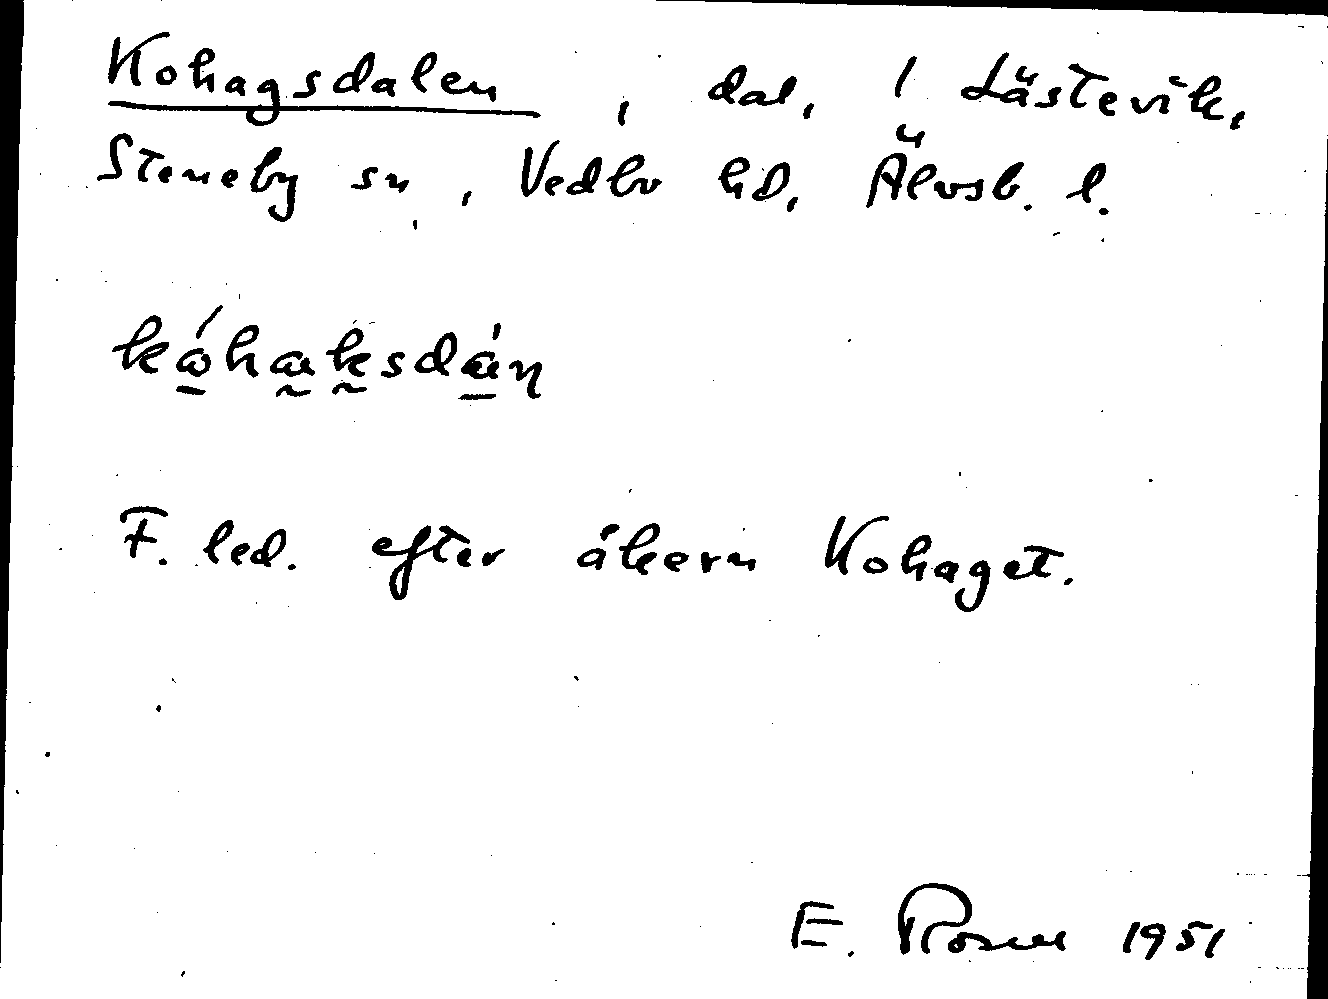 Kohagsdalen, dal, i Lästevik,
Steneby sn, Vedbo hd, Älvsb. l.
kώhaksdán
F. led. efter åkern Kohaget.
E. Rosell 1951